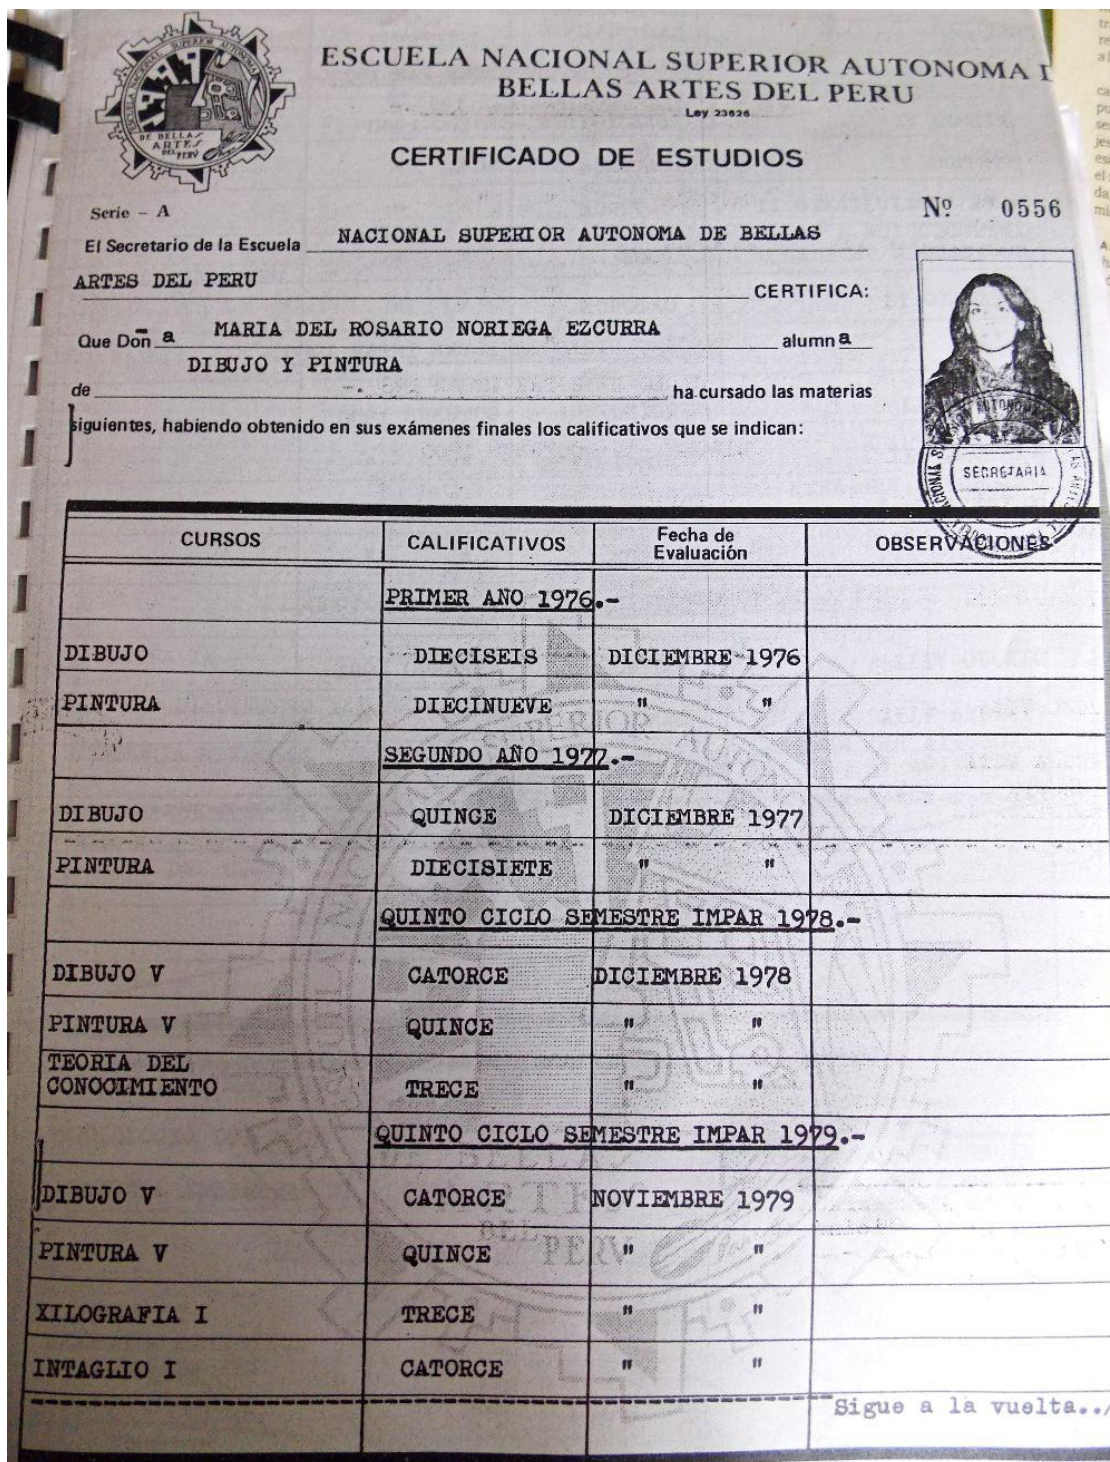 ESCUELA NACIONAL SUPERIOR AUTONOMA
BELLAS ARTES DEL PERU
Ley 23626
CERTIFICADO DE ESTUDIOS
Serie - A
Nº 0556
El Secretario de la Escuela NACIONAL SUPERIOR AUTONOMA DE BELLAS
ARTES DEL PERU CERTIFICA:
Que Don̄ a MARIA DEL ROSARIO NORIEGA EZCURRA alumn a
DIBUJO Y PINTURA
de ha cursado las materias
siguientes, habiendo obtenido en sus exámenes finales los calificativos que se indican:
SECRETARIA
CURSOS CALIFICATIVOS Fecha de Evaluación OBSERVACIONES
PRIMER AÑO 1976.-
DIBUJO DIECISEIS DICIEMBRE 1976
PINTURA DIECINUEVE " "
SEGUNDO AÑO 1977.-
DIBUJO QUINCE DICIEMBRE 1977
PINTURA DIECISIETE " "
QUINTO CICLO SEMESTRE IMPAR 1978.-
DIBUJO V CATORCE DICIEMBRE 1978
PINTURA V QUINCE " "
TEORIA DEL
CONOCIMIENTO TRECE " "
QUINTO CICLO SEMESTRE IMPAR 1979.-
DIBUJO V CATORCE NOVIEMBRE 1979
PINTURA V QUINCE " "
XILOGRAFIA I TRECE " "
INTAGLIO I CATORCE " "
Sigue a la vuelta../